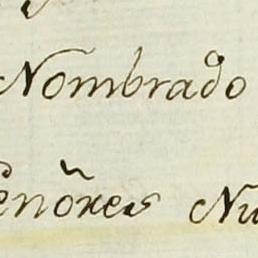 Nombrado
eñores Nu